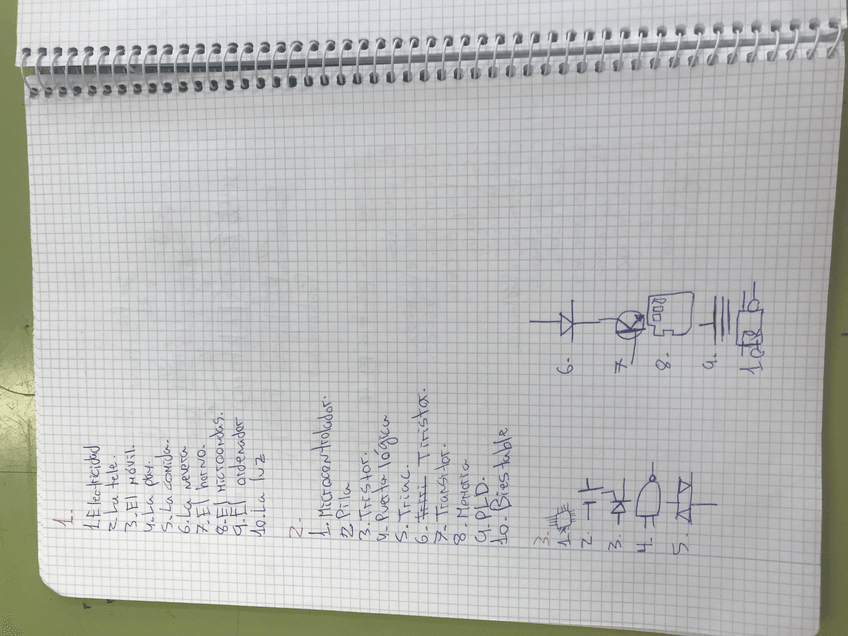 1.
1. Electricidad
2. La tele.
3. El móvil.
4. La play.
5. La comida.
6. La nevera
7. El horno.
8. El microondas.
9. El ordenador
10. La luz
2.
1. Microcontrolador.
2 Pila
3. Tristor.
4. Puerta lógica
5. Triac.
6. Tiristor.
7. Transitor.
8. Memoria
9. PLD.
10. Biestable
3.
1.
2
3.
4.
5.
6.
7.
8.
9.
10